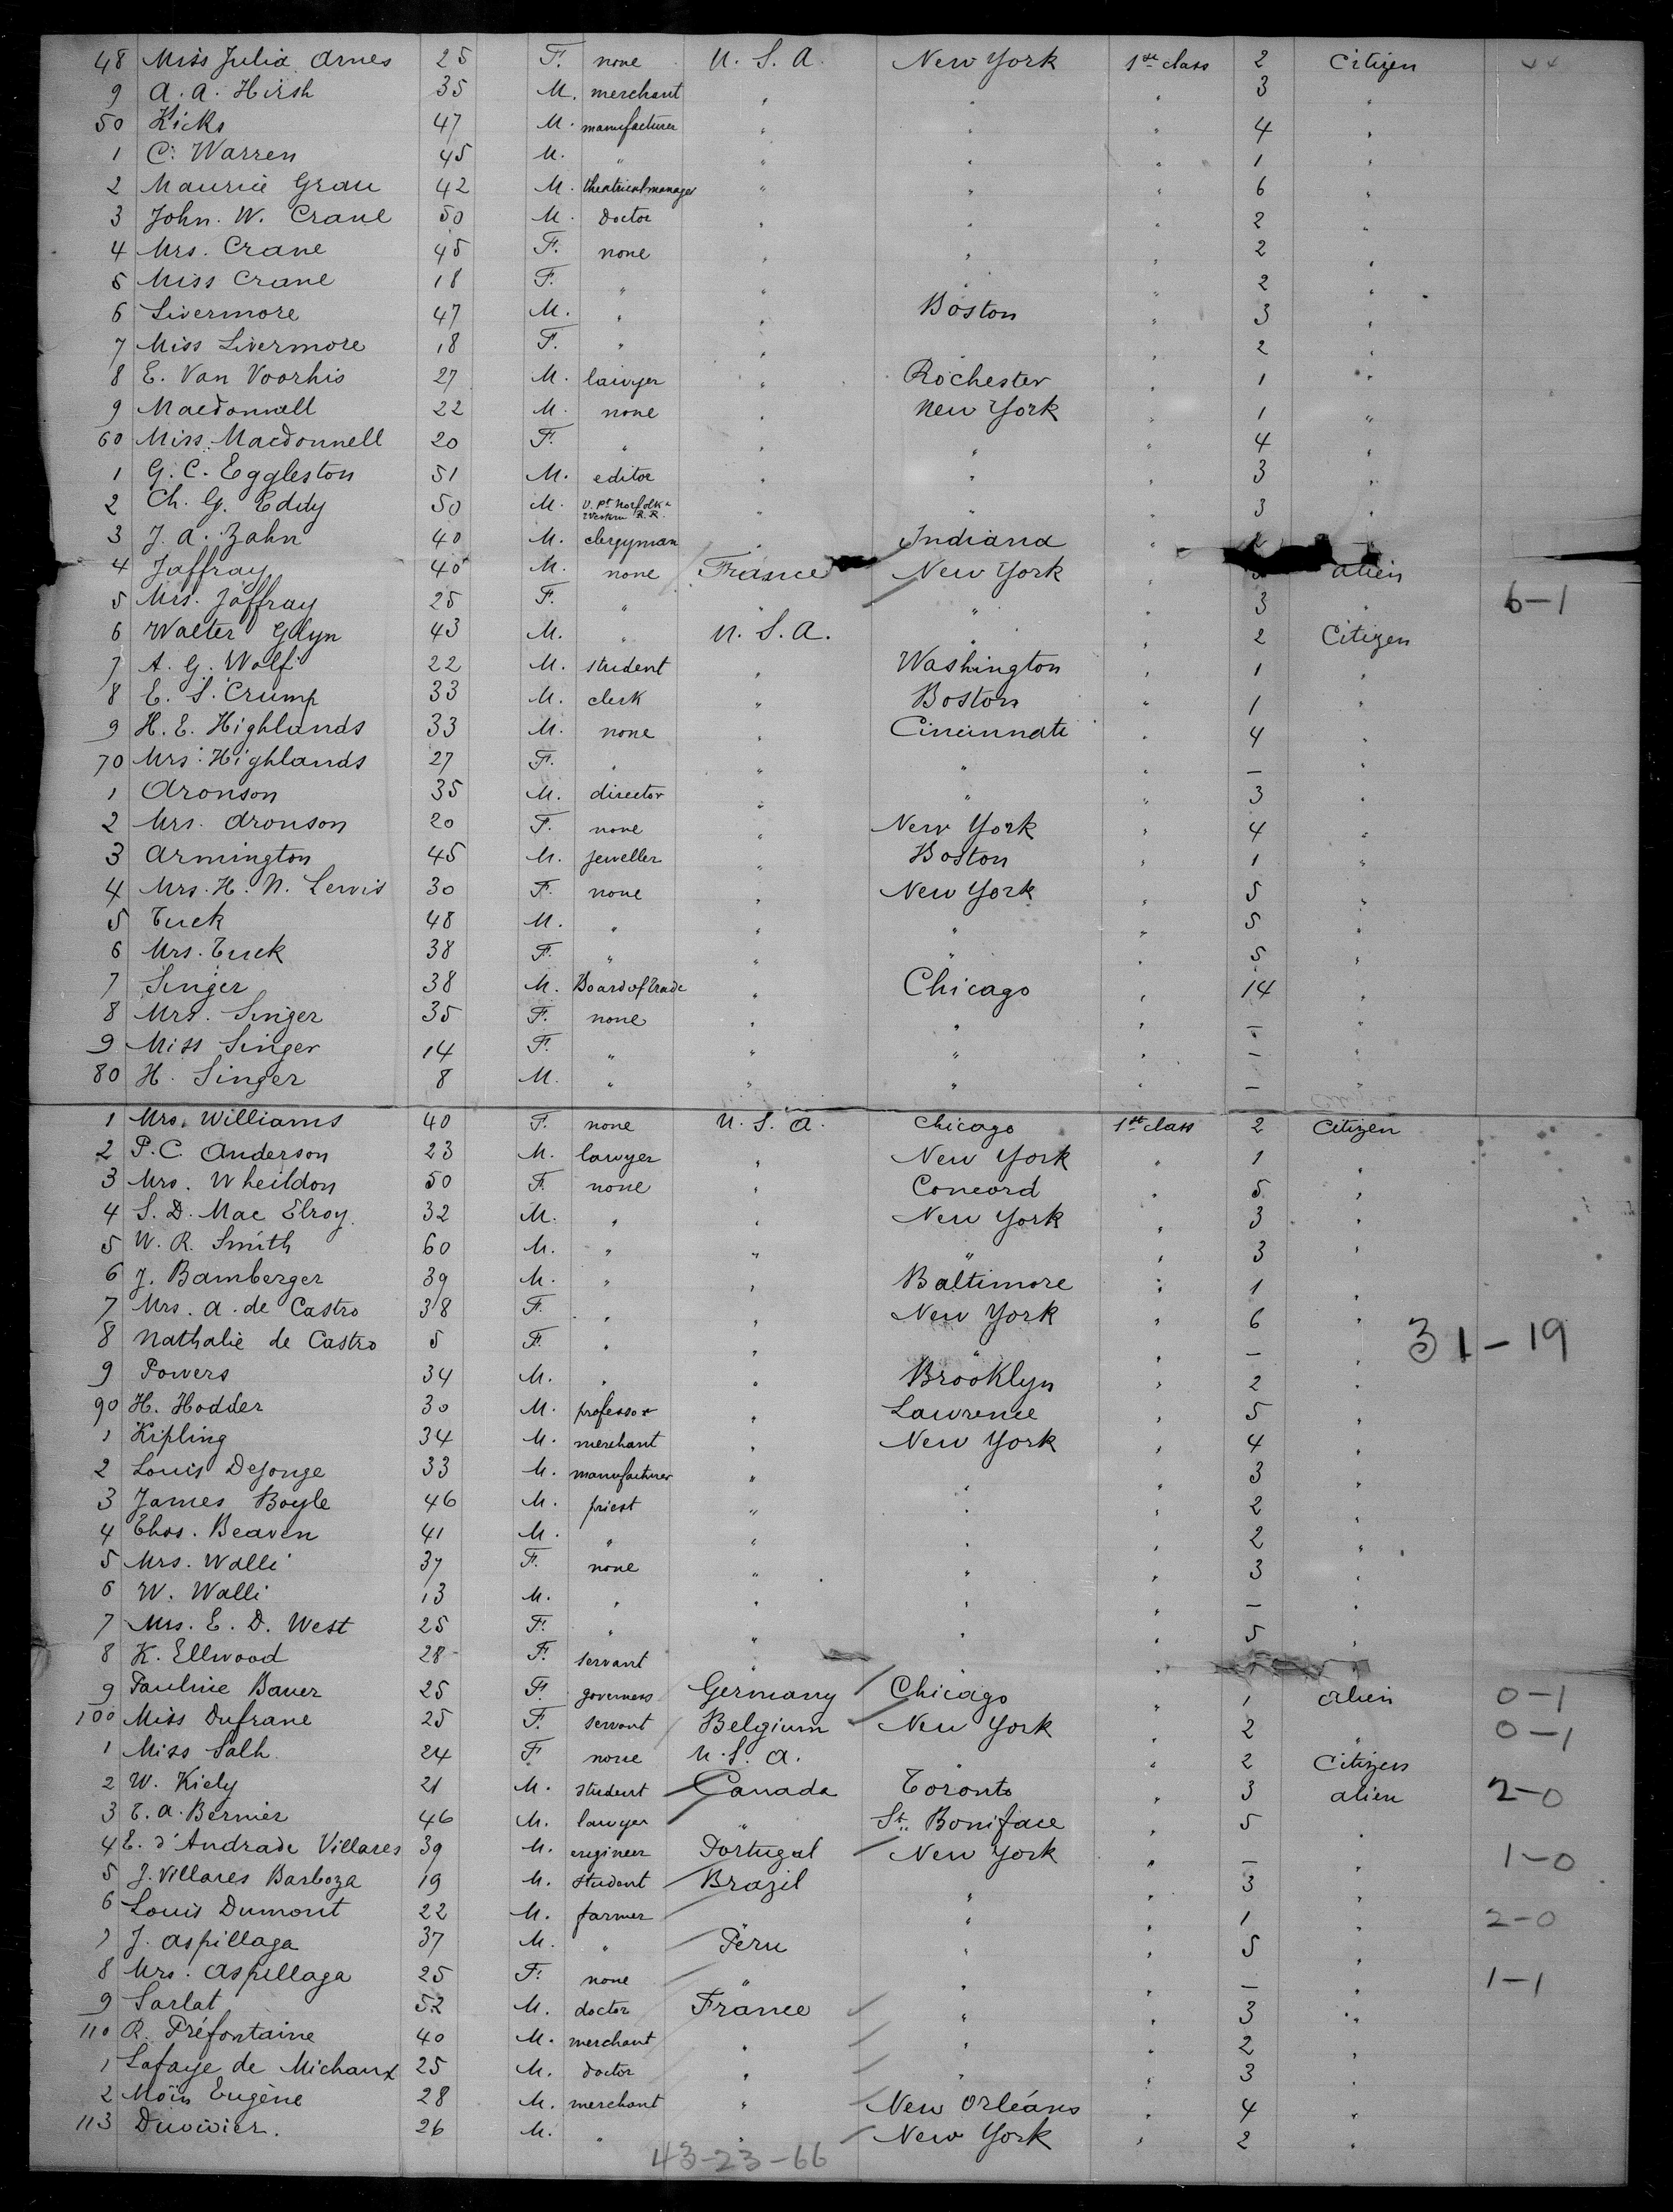 48 Miss Julia Ames 25 F. none U. S. A. New York 1st class 2 Citizen
9 A. A. Hirsh 35 M. merchant " " " 3 "
50 Hicks 47 M. manufacturer " " " 4 "
1 C. Warren 45 M. " " " " 1 "
2 Maurice Grau 42 M. theatrical manager " " " 6 "
3 John. W. Crane 50 M. Doctor " " " 2 "
4 Mrs. Crane 45 F. none " " " 2 "
5 Miss Crane 18 F. " " " " 2 "
6 Livermore 47 M. " " Boston " 3 "
7 Miss Livermore 18 F. " " " " 2 "
8 E. Van Voorhis 27 M. lawyer " Rochester " 1 "
9 Macdonnell 22 M. none " New York " 1 "
60 Miss Macdonnell 20 F. " " " " 4 "
1 G. C. Eggleston 51 M. editor " " " 3 "
2 Ch. G. Eddy 50 M. V. Pt Norfolk & Western R. R. " " " 3 "
3 J. A. Zahn 40 M. clergyman " Indiana " 2
4 Jaffray 40 M. none France New York " 3 alien
5 Mrs. Jaffray 25 F. " " " " 3 " 6-1
6 Walter Glyn 43 M. " U. S. A. " " 2 Citizen
7 A. G. Wolf 22 M. student " Washington " 1 "
8 E. S. Crump 33 M. clerk " Boston " 1 "
9 H. E. Highlands 33 M. none " Cincinnati " 4 "
70 Mrs. Highlands 27 F. " " " " — "
1 Aronson 35 M. director " " " 3 "
2 Mrs. Aronson 20 F. none " New York " 4 "
3 Armington 45 M. jeweller " Boston " 1 "
4 Mrs. H. N. Lewis 30 F. none " New York " 5 "
5 Tuck 48 M. " " " " 5 "
6 Mrs. Tuck 38 F. " " " " 5 "
7 Singer 38 M. Board of trade " Chicago " 14 "
8 Mrs. Singer 35 F. none " " " — "
9 Miss Singer 14 F. " " " " — "
80 H. Singer 8 M. " " " " — "
1 Mrs. Williams 40 F. none U. S. A. Chicago 1st class 2 Citizen
2 P. C. Anderson 23 M. lawyer " New York " 1 "
3 Mrs. Wheildon 50 F. none " Concord " 5 "
4 S. D. Mac Elroy 32 M. " " New York " 3 "
5 W. R. Smith 60 M. " " " " 3 "
6 J. Bamberger 39 M. " " Baltimore " 1 "
7 Mrs. A. de Castro 38 F. " " New York " 6 "
8 Nathalie de Castro 5 F. " " " " — " 31-19
9 Powers 34 M. " " Brooklyn " 2 "
90 H. Hodder 30 M. professor " Lawrence " 5 "
1 Kipling 34 M. merchant " New York " 4 "
2 Louis Dejonge 33 M. manufacturer " " " 3 "
3 James Boyle 46 M. priest " " " 2 "
4 Thos. Beaven 41 M. " " " " 2 "
5 Mrs. Walli 37 F. none " " " 3 "
6 W. Walli 13 M. " " " " — "
7 Mrs. E. D. West 25 F. " " " " 5 "
8 K. Ellwood 28 F. servant " " "
9 Pauline Bauer 25 F. governess Germany Chicago " 1 alien 0-1
100 Miss Dufrane 25 F. servant Belgium New York " 2 " 0-1
1 Miss Salh 24 F none U. S. A. " " 2 Citizen
2 W. Kiely 21 M. student Canada Toronto " 3 alien 2-0
3 T. A. Bernier 46 M. lawyer " St. Boniface " 5 "
4 E. d'Andrade Villares 39 M. engineer Portugal New York " — " 1-0
5 J. Villares Barboza 19 M. student Brazil " " 3 "
6 Louis Dumont 22 M. farmer " " 1 " 2-0
7 J. Aspillaga 37 M. " Peru " " 5 "
8 Mrs. Aspillaga 25 F. none " " " — " 1-1
9 Sarlat 52 M. doctor France " " 3 "
110 R. Préfontaine 40 M. merchant " " " 2 "
1 Lafaye de Michaux 25 M. doctor " " " 3 "
2 Moïn Eugène 28 M. merchant " New Orléans " 4 "
113 Duvivier. 26 M. " " New York " 2 "
43-23-66